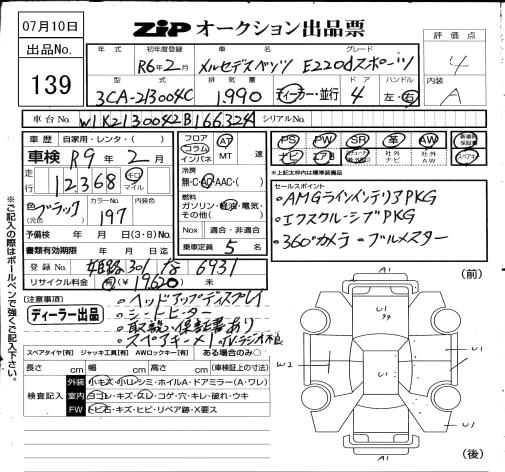 07月10日
ZIP オークション出品票
出品No.
139
評価点
4
内装
A
年式 初年度登録 車名 グレード
R6年2月 メルセデスベンツ E220dスポーツ
型式 排気量 ドア ハンドル
3CA-213004C 1,990 ディーラー・並行 4 左・右
車台No. W1K2130042B166324 シリアルNo.
車歴 自家用・レンタ・( )
車検 R9年2月
走行 12,368 km マイル
色 ブラック (元色) カラーNo. 197 内装色
予備検 年 月 日(3・8)No.
書類有効期限 年 月 日迄
登録No. 姫路 301 な 6931
リサイクル料金 有(¥19620) 未
フロア コラム インパネ AT MT 速
冷房 無・C・AC・AAC・( )
燃料 ガソリン・軽油・電気・その他( )
Nox 適合・非適合
乗車定員 5 名
PS PW SR 革 AW 新車時保証書
ナビ エアB 社外ナビ 社外AW スペアキー
※上記太枠内は標準装備品
セールスポイント
・AMGラインインテリアPKG
・エクスクルーシブPKG
・360°カメラ ・ブルメスター
[注意事項]
ディーラー出品
・ヘッドアップディスプレイ
・シートヒーター
・取説・保証書あり
・スペアキー×1 ・TV・ラジオ不良
スペアタイヤ[有] ジャッキ工具[有] AWロックキー[有] ある場合のみ○
長さ cm 幅 cm 高さ cm (車検証上の寸法)
検査記入
外装 小キズ・小凹・シミ・ホイルA・ドアミラー(A・ワレ)
室内 ヨゴレ・キズ・スレ・コゲ・穴・キレ・破れ・ウキ
FW トビ石・キズ・ヒビ・リペア跡・X要ス
※ご記入の際はボールペンで強くご記入下さい。
(前)
A1
U1
U1
W2
U1
U1
A1
(後)